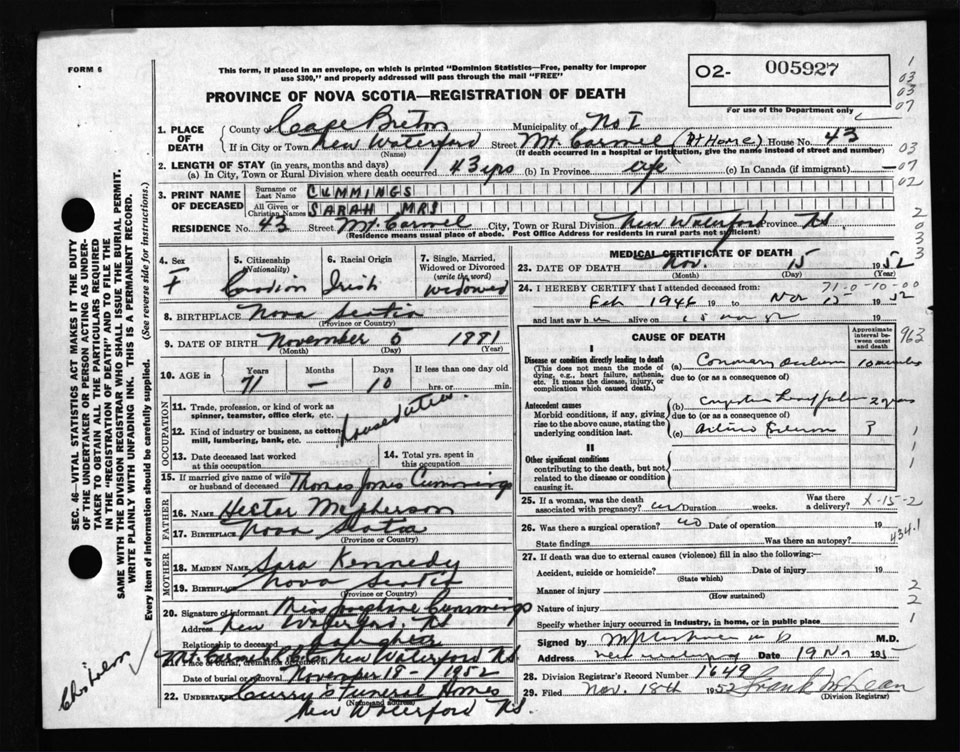 FORM 6
This form, if placed in an envelope, on which is printed "Dominion Statistics—Free, penalty for improper
use $300," and properly addressed will pass through the mail "FREE"
O2- 005927
For use of the Department only
PROVINCE OF NOVA SCOTIA—REGISTRATION OF DEATH
1. PLACE OF DEATH
County of Cape Breton Municipality of
If in City or Town New Waterford Street Mt. Carmel (At Home) House No. 43
(Name) (If death occurred in a hospital or institution, give the name instead of street and number)
2. LENGTH OF STAY (in years, months and days)
(a) In City, Town or Rural Division where death occurred 43 yrs (b) In Province life (c) In Canada (if immigrant) —
3. PRINT NAME OF DECEASED
Surname or Last Name CUMMINGS
All Given or Christian Names SARAH MRS
RESIDENCE No. 43 Street Mt. Carmel City, Town or Rural Division New Waterford Province N.S.
(Residence means usual place of abode. Post Office Address for residents in rural parts not sufficient)
4. Sex F
5. Citizenship (Nationality) Canadian
6. Racial Origin Irish
7. Single, Married, Widowed or Divorced (write the word) Widowed
8. BIRTHPLACE Nova Scotia
(Province or Country)
9. DATE OF BIRTH November 5 1881
(Month) (Day) (Year)
10. AGE Years 71 Months — Days 10 If less than one day old hrs. or min.
OCCUPATION
11. Trade, profession, or kind of work as spinner, teamster, office clerk, etc.
12. Kind of industry or business, as cotton mill, lumbering, bank, etc.
13. Date deceased last worked at this occupation
14. Total yrs. spent in this occupation
15. If married give name of wife or husband of deceased Thomas James Cummings
FATHER
16. NAME Hector McPherson
17. BIRTHPLACE Nova Scotia
(Province or Country)
MOTHER
18. MAIDEN NAME Sara Kennedy
19. BIRTHPLACE Nova Scotia
(Province or Country)
20. Signature of informant Miss Josephine Cummings
Address New Waterford, N.S
Relationship to deceased daughter
21. Place of burial, cremation or removal Mt. Carmel New Waterford N.S
Date of burial or removal November 18 - 1952
22. Undertaker Curry's Funeral Home
(Name and address)
New Waterford N.S.
MEDICAL CERTIFICATE OF DEATH
23. DATE OF DEATH Nov. 15 1952
(Month) (Day) (Year)
24. I HEREBY CERTIFY that I attended deceased from: 71-0-10-00
Feb 1946 19 to Nov 15 1952
and last saw h alive on
CAUSE OF DEATH
Approximate interval between onset and death
I
Disease or condition directly leading to death
(This does not mean the mode of dying, e.g., heart failure, asthenia, etc. It means the disease, injury, or complication which caused death.)
(a) Coronary
due to (or as a consequence of)
Antecedent causes
Morbid conditions, if any, giving rise to the above cause, stating the underlying condition last.
(b) 2 years
due to (or as a consequence of)
(c)
II
Other significant conditions
contributing to the death, but not related to the disease or condition causing it.
25. If a woman, was the death associated with pregnancy? Duration weeks. Was there a delivery?
X-15-2
26. Was there a surgical operation? no Date of operation 19
State findings Was there an autopsy?
434.1
27. If death was due to external causes (violence) fill in also the following:—
Accident, suicide or homicide? Date of injury 19
(State which)
Manner of injury
(How sustained)
Nature of injury
Specify whether injury occurred in industry, in home, or in public place
Signed by M.D.
Address Date 19 Nov 195
28. Division Registrar's Record Number 1649
29. Filed Nov. 18th 1952 Frank McLean
(Division Registrar)
SEC. 46—VITAL STATISTICS ACT MAKES IT THE DUTY
OF THE UNDERTAKER OR PERSON ACTING AS UNDERTAKER
TO OBTAIN ALL THE PARTICULARS REQUIRED
IN THE "REGISTRATION OF DEATH" AND TO FILE THE
SAME WITH THE DIVISION REGISTRAR WHO SHALL ISSUE THE BURIAL PERMIT.
WRITE PLAINLY WITH UNFADING INK. THIS IS A PERMANENT RECORD.
Every item of information should be carefully supplied. (See reverse side for instructions.)
1
03
03
07
03
07
02
2
0
3
3
3
963
1
1
1
2
2
1